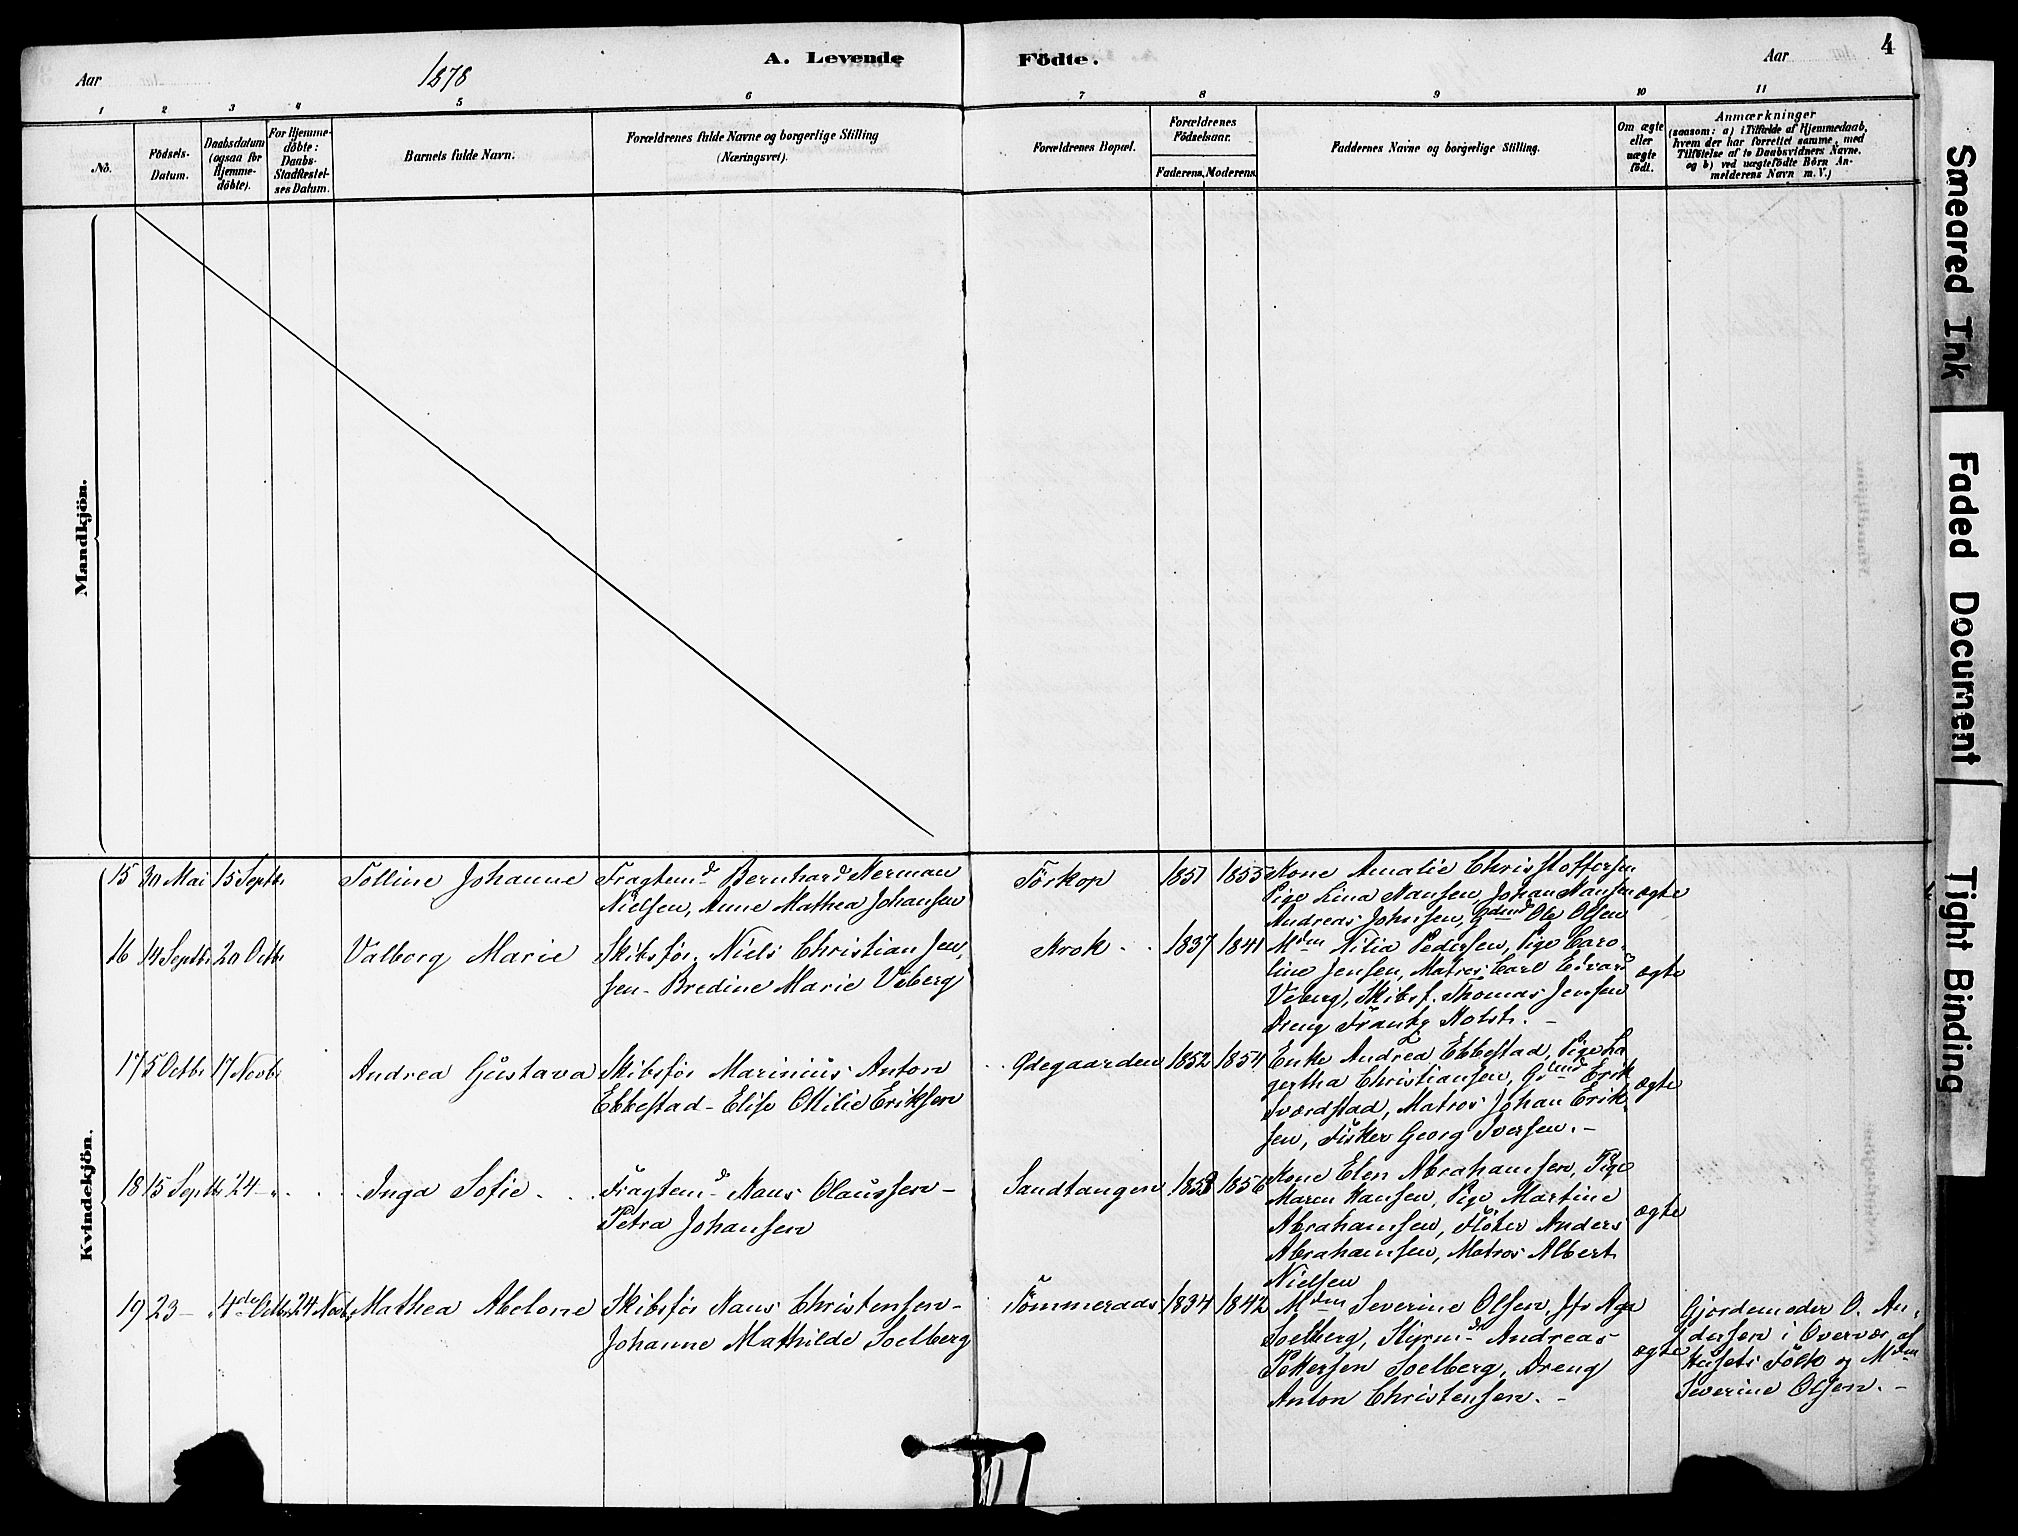 Aar
1878
A. Levende
Födte.
Aar
4
1 2 3 4 5 6 7 8 9 10 11
No.
Födsels-
Datum.
Daabsdatum
(ogsaa for
Hjemme-
döbte).
For Hjemme-
döbte:
Daabs-
Stadfæstel-
ses Datum.
Barnets fulde Navn.
Forældrenes fulde Navne og borgerlige Stilling
(Næringsvei).
Forældrenes Bopæl.
Forældrenes
Födselsaar.
Faderens. Moderens.
Faddernes Navne og borgerlige Stilling.
Om ægte
eller
uægte
födt.
Anmærkninger
(saasom: a) i Tilfælde af Hjemmedaab,
hvem der har forrettet samme, med
Tilföielse af to Daabsvidners Navne.
og b) ved uægtefödte Börn An-
melderens Navn m.V.)
Mandkjön.
Kvindekjön.
15 30 Mai 15 Septbr
Tolline Johanne
Fragtemd Bernhard Herman
Nielsen, Anne Mathea Johansen
Törkop
1851 1855
Kone Amalie Christoffersen
Pige Lina Hansen, Johan Hansen
Andreas Johnsen, Ole Olsen
ægte
16 14 Septbr 20 Octbr
Valborg Marie
Skibsför. Niels Christian Jen-
sen - Bredine Marie Viberg
Krok
1837 1841
Mdm Nilia Pedersen, Pige Caro-
line Jensen, Matros Carl Edvard
Viberg, Skibsf. Thomas Jensen
Dreng Frantz Holst. -
ægte
17 5 Octbr 17 Novbr
Andrea Gustava
Skibsför Marinius Anton
Ebbestad - Elise Ottilie Eriksen
Ødegaarden
1852 1854
Enke Andrea Ebbestad, Pige Ha
gertha Christiansen, Erik
Sværdstad, Matros Johan Erik-
sen, Fisker Georg Iversen. -
ægte
18 15 Septbr 24 - "
Inga Sofie
Fragtemd Hans Olaussen -
Petra Johansen
Sandtangen
1853 1856
Kone Elen Abrahamsen, Pige
Maren Hansen, Pige Martine
Abrahamsen, Flöter Anders
Abrahamsen, Matros Albert
Nielsen
ægte
19 23 - " 4de Octbr 24 Novbr
Mathea Abelone
Skibsför Hans Christensen -
Johanne Mathilde Soelberg
Tömmeraas
1834 1842
Mdm Severine Olsen, Jfr Aga
Soelberg, Styrmd Andreas
Pettersen Soelberg, Dreng
Anton Christensen. -
ægte
Gjordemoder O. An-
dersen i Overvær af
Husets Folk og Mdm
Severine Olsen. -
Smeared Ink
Faded Document
Tight Binding